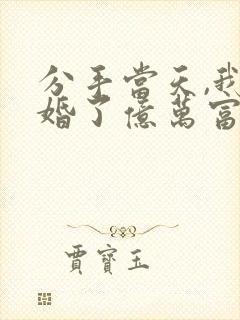 分手當天,我
婚了億萬富
賈寶玉